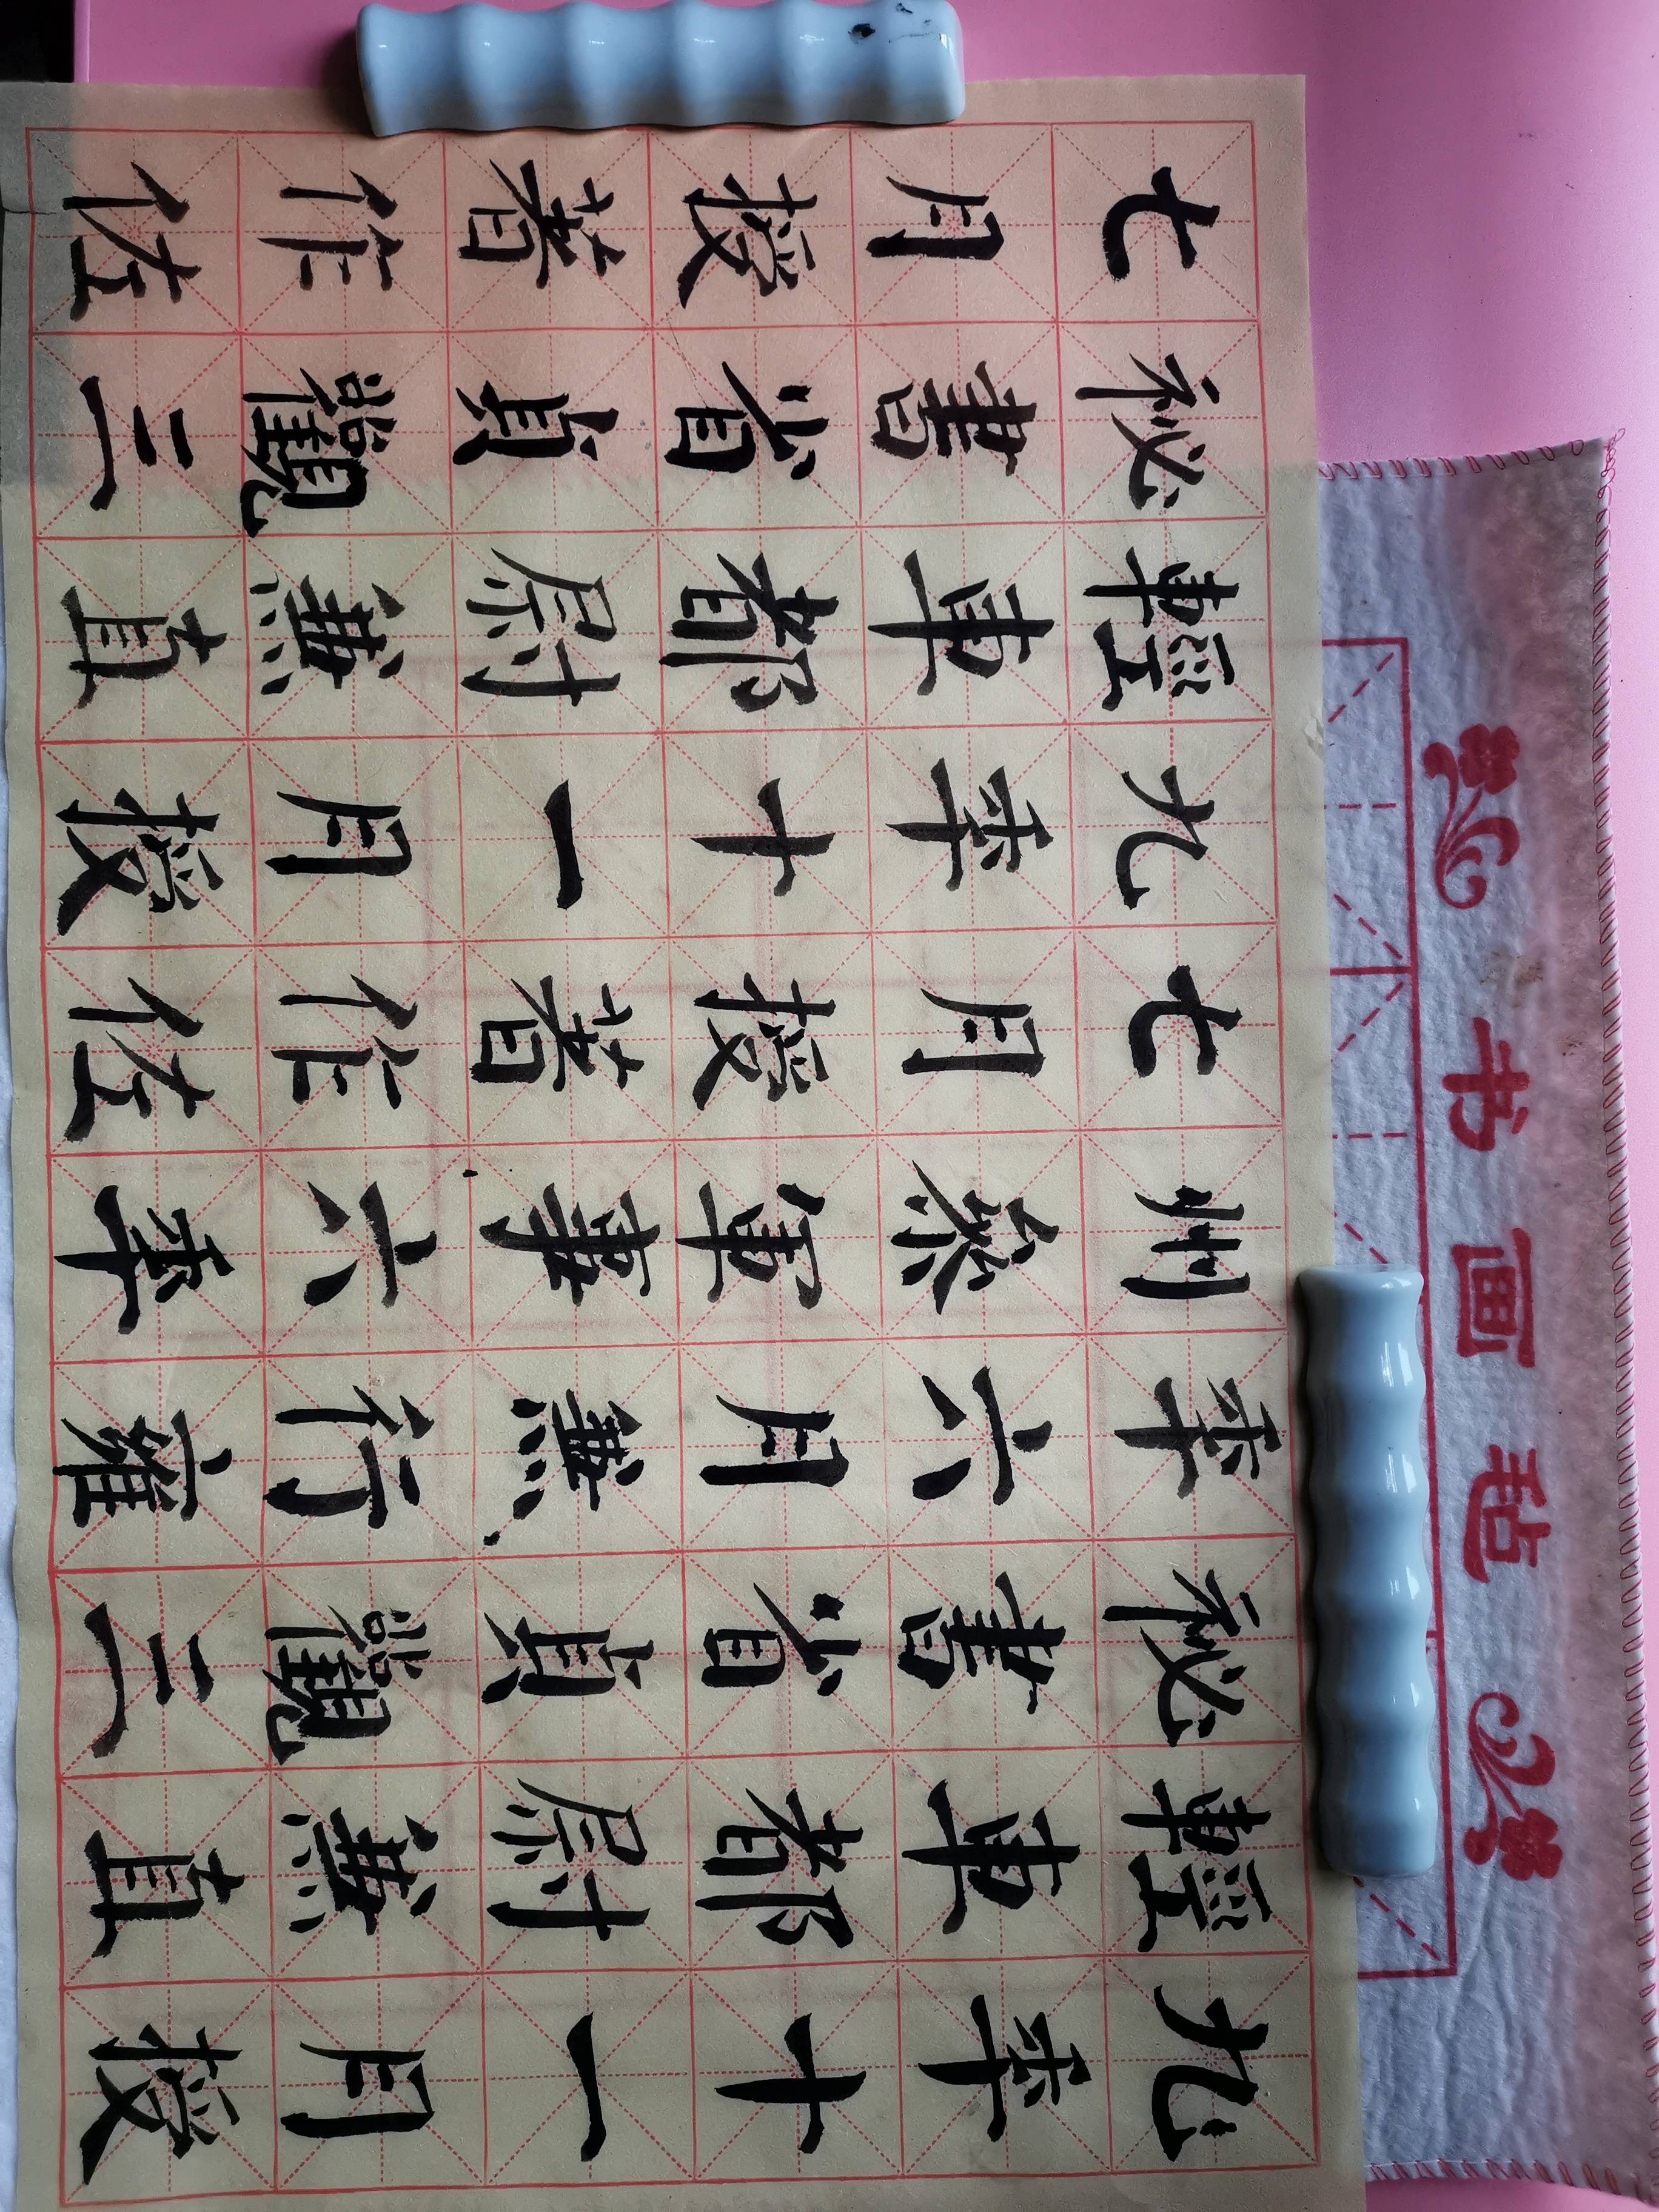 九年十一月授
輕車都尉兼直
秘書省貞觀三
年六月兼行雍
州叅軍事六年
七月授著作佐
九年十一月授
輕車都尉兼直
秘書省貞觀三
七月授著作佐
书画毡